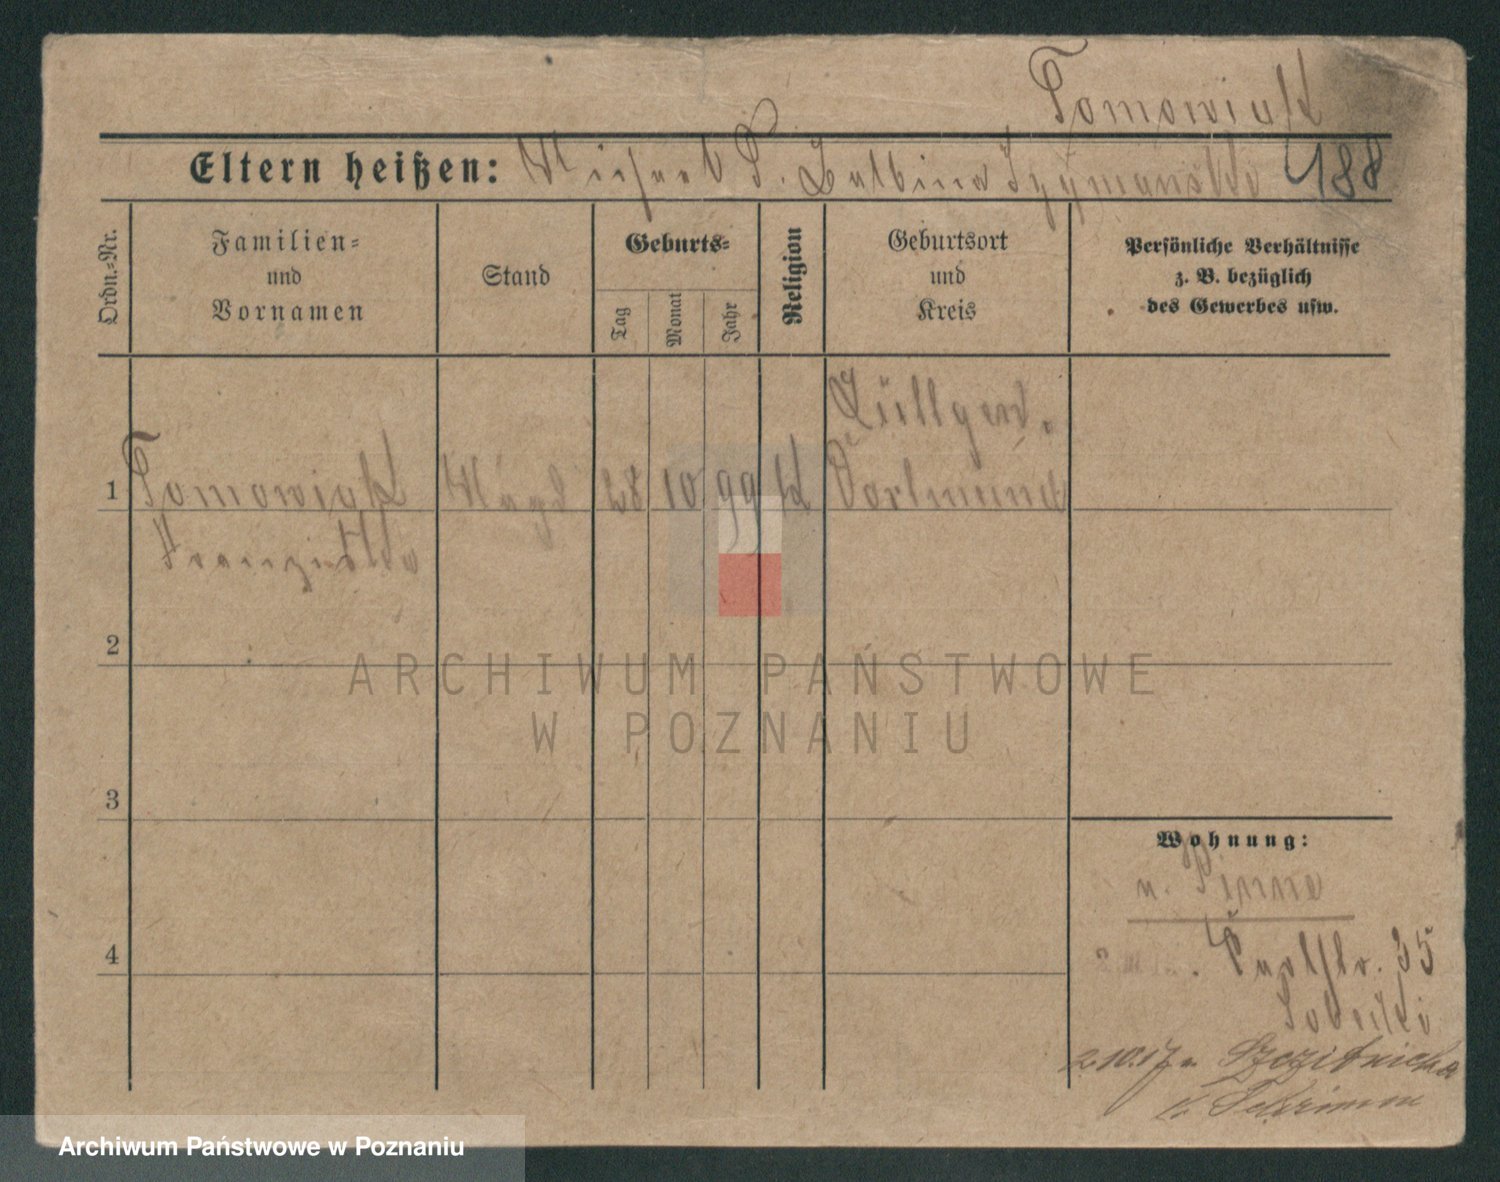 Tomowiak
Eltern heißen: Michael T. Balbina Szymanska 188
Ordn.-Nr.
Familien-
und
Vornamen
Stand
Geburts-
Tag
Monat
Jahr
Religion
Geburtsort
und
Kreis
Persönliche Verhältnisse
z. B. bezüglich
des Gewerbes usw.
Lüttgend.
1 Tomowiak Magd 28 10 99 K Dortmund
Franziska
2
ARCHIWUM PAŃSTWOWE
W POZNANIU
3
Wohnung:
n. Pinne
4
Parkstr. 35
Sobeski
2 10.17 n Szczitnicka
K. Schrimm
Archiwum Państwowe w Poznaniu